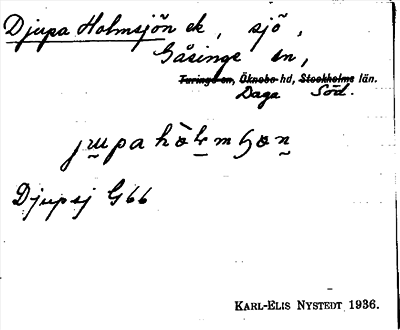 Djupa Holmsjön ek, sjö,
Gåsinge sn,
Turinge sn, Öknebo hd, Stockholms län.
Daga Söd.
jɯpa hòlmʂɷn
Djupsj G66
KARL-ELIS NYSTEDT 1936.